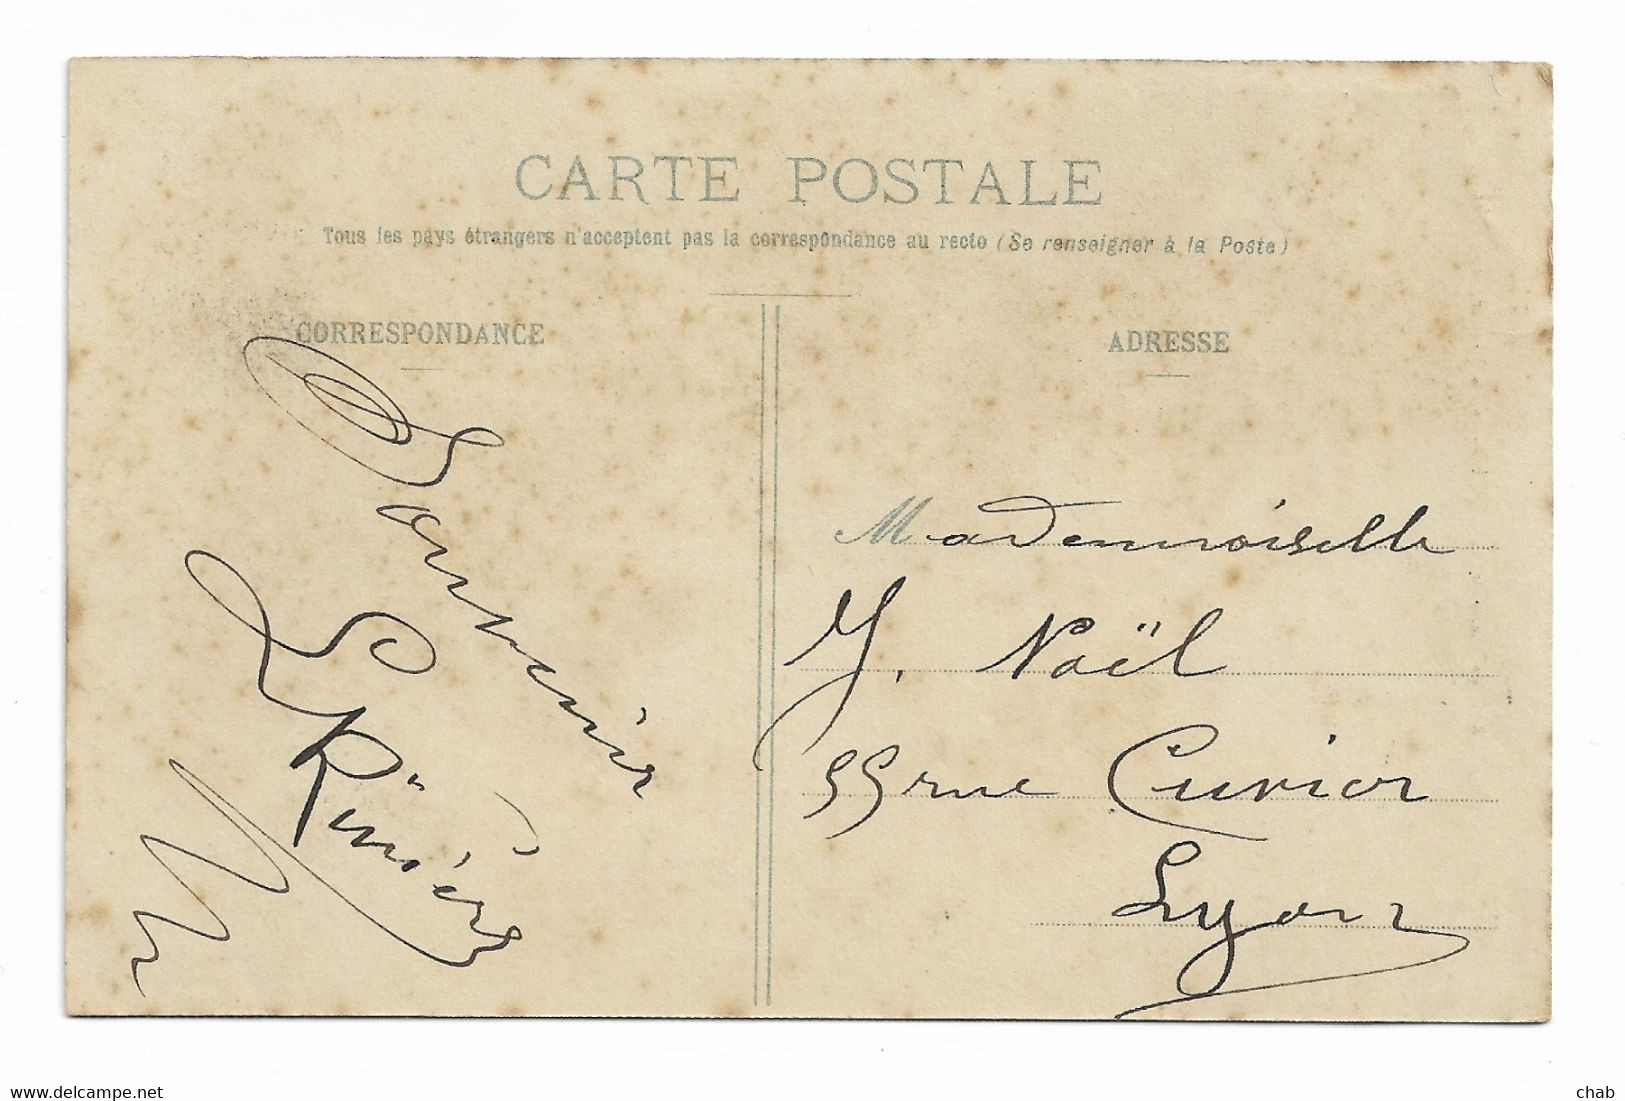 CARTE POSTALE
Tous les pays étrangers n'acceptent pas la correspondance au recto (Se renseigner à la Poste)
CORRESPONDANCE
Souvenir
ADRESSE
Mademoiselle
J. Noël
55 rue Cuvier
Lyon
www.delcampe.net
chab